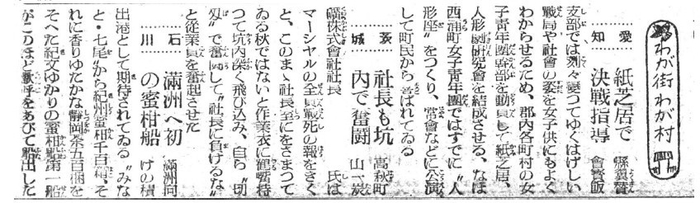 わが街わが村
愛知 紙芝居で決戦指導 縣翼賛會寶飯
支部では刻々變つてゆくはげしい
戰局や社會の姿を女子供にもよく
わからせるため、郡内各町村の女
子青年團幹部を動員して紙芝居、
人形劇研究會を結成させる、なほ
西浦町女子青年團ではすでに“人
形座”をつくり、常會などに公演
して町民から喜ばれてゐる
茨城 社長も坑内で奮闘 高萩町山一炭
礦株式會社社長 氏は
マーシヤルの全員戰死の報をきく
と、このまゝ社長室にをさまつて
ゐる秋ではないと作業衣に
つて坑内深く飛び込み、自ら“切
羽”で奮闘して“社長に負けるな”
と從業員を奮起させた
石川 滿洲へ初の蜜柑船 滿洲向けの積
出港として期待されてゐる“みな
と・七尾”から紀州蜜柑千百箱、そ
れに香りゆたかな靜岡茶五百梱を
そへた紀文ゆかりの蜜柑船第一船
がこのほど歡呼をあびて船出した